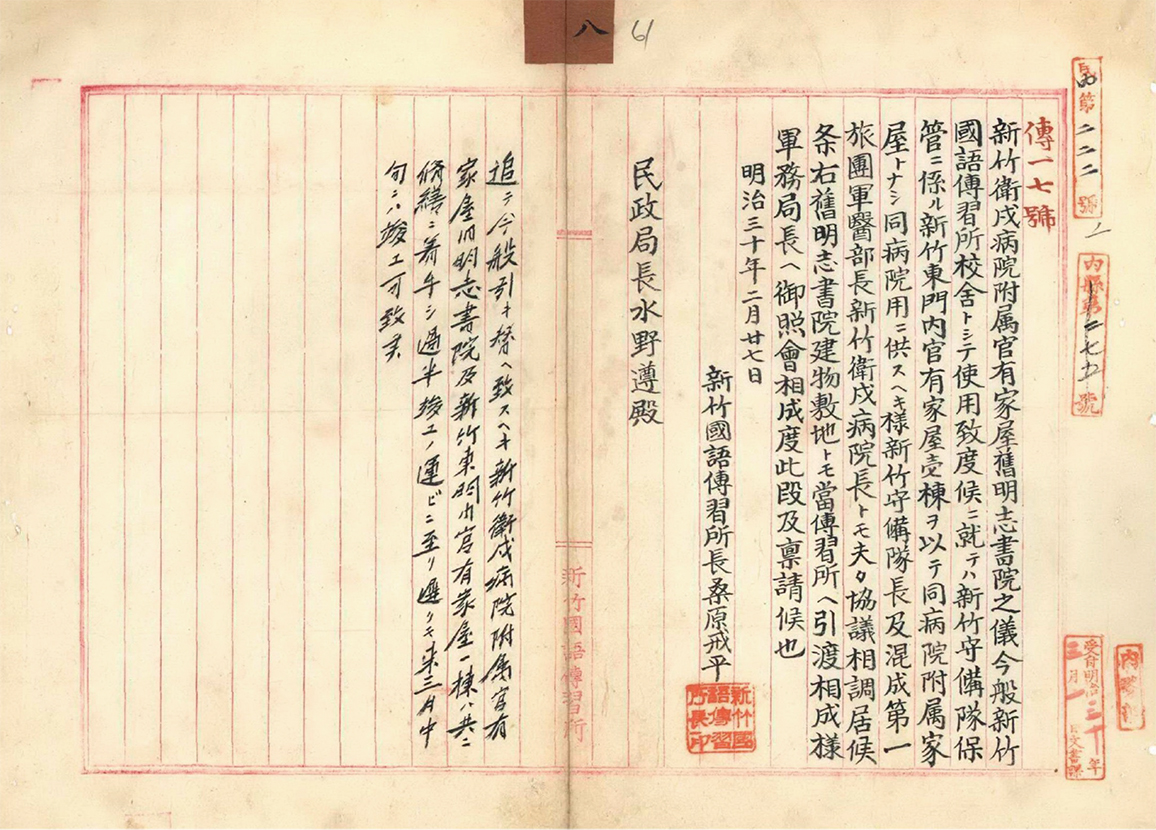 八
61
民第二二二號ノ一
内縣第一二七五號
受付明治三十年三月一日文書課
傳一七號
新竹衛戍病院附属官有家屋舊明志書院之儀今般新竹
國語傳習所校舎トシテ使用致度候ニ就テハ新竹守備隊保
管ニ係ル新竹東門内官有家屋壱棟ヲ以テ同病院附属家
屋トナシ同病院用ニ供スヘキ様新竹守備隊長及混成第一
旅團軍醫部長新竹衛戍病院長トモ夫々協議相調居候
条右舊明志書院建物敷地トモ當傳習所ヘ引渡相成様
軍務局長ヘ御照會相成度此段及禀請候也
明治三十年二月廿七日
新竹國語傳習所長桑原戒平
新竹國語傳習所長印
民政局長水野遵殿
追テ今般引キ替ヘ致スヘキ新竹衛戍病院附属官有
家屋旧明志書院及新竹東門内官有家屋一棟ハ共ニ
修繕ニ着手シ過半竣工ノ運ビニ至リ遅クモ来三月中
旬ニハ竣工可致候
新竹國語傳習所